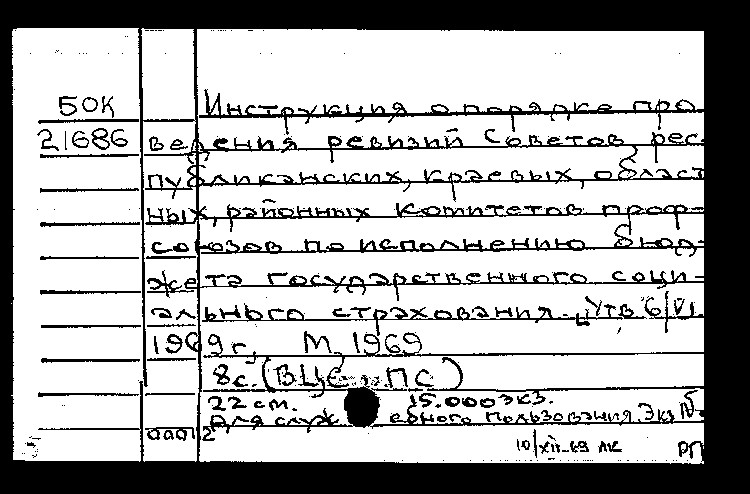 БОК Инструкция о порядке про
21686 ведения ревизий Советов, рес-
публиканских, краевых, област
ных, районных комитетов проф-
союзов по исполнению бюд-
жета государственного соци-
ального страхования. Утв 6/VI
1969 г., М, 1969
8 с. (ВЦСПС)
22 см. 15.000 экз.
Для служебного пользования. Экз №
00012
10/XII-69 ЛК РП